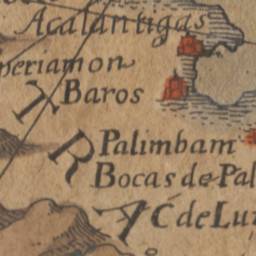 Acalantigas
periamon
Baros
T
R
Palimbam
Bocas de Pal
A
C de Lu